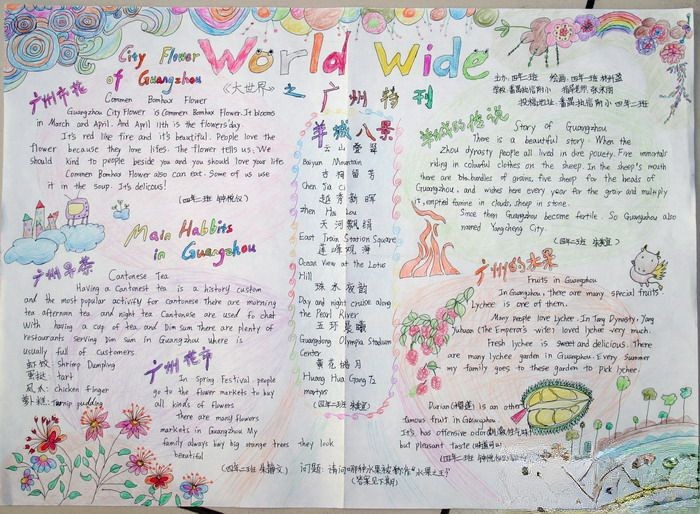 City Flower
of Guangzhou
World Wide
《大世界》之广州特刊
主办:四年二班
广州市花
Common Bombax Flower
Guangzhou City Flower is Common Bombax Flower. It blooms
in March and April. And April 11th is the flower's day.
It's red like fire and it's beautiful. People love the
flower because they love lifes. The flower tells us: We
should kind to people beside you and you should love your life.
Common Bombax Flower also can eat. Some of us use
it in the soup. It's delicous!
Main Habbits
in Guangzhou
广州早茶
Cantonese Tea
Having a Cantonest tea is a history custom
and the most popular activity for cantonese There are morning
tea afternoon tea and night tea Cantonese are used to chat
with having a cup of tea and Dim Sum There are plenty of
restaurants serving Dim Sum in Guangzhou where is
usually full of customers
虾饺: Shrimp Dumpling
蛋挞: tart
凤爪: chicken finger
turnip pudding
广州花市
In Spring Festival, people
go to the flower markets to buy
all kinds of flowers
There are many flowers
markets in Guangzhou My
family always buy big orange trees they look
beautiful
羊城八景
云山叠翠
Baiyun Mountain
古祠留芳
Chen Jia Ci
越秀新晖
Zhen Hai Lou
天河飘绢
East Train Station Square
莲峰观海
Ocean View at the Lotus
Hill
珠水夜韵
Day and night cruise along
the Pearl River
五环晨曦
Guangdong Olympia Stadium
Center
黄花皓月
Huang Hua Gang 72
martyrs
羊城的传说
Story of Guangzhou
There is a beautiful story: When the
Zhou dynasty people all lived in dire povety. Five immortals
riding in colourful clothes on the sheep. In the sheep's mouth
there are bundles of grains, five sheep for the beads of
Guangzhou, and wishes here every year for the grair and multiply
it, empted famine in clouds, sheep in stone.
Since then Guangzhou become fertile. So Guangzhou also
named Yangcheng City.
广州的水果
Fruits in Guangzhou
In Guangzhou, there are many special fruits
Lychee is one of them.
Many people love Lychee. In Tang Dynasty, Yang
Yuhuan (The Emperor's wife) loved lychee very much.
Fresh lychee is sweet and delicious. There
are many lychee garden in Guangzhou. Every summer
my family goes to these garden to pick lychee.
Durian (榴莲) is an other
famous fruit in Guangzhou
It's has offensive odor
but pleasant taste
问题: 请问哪种水果被称作"水果之王"?
(答案见下期)